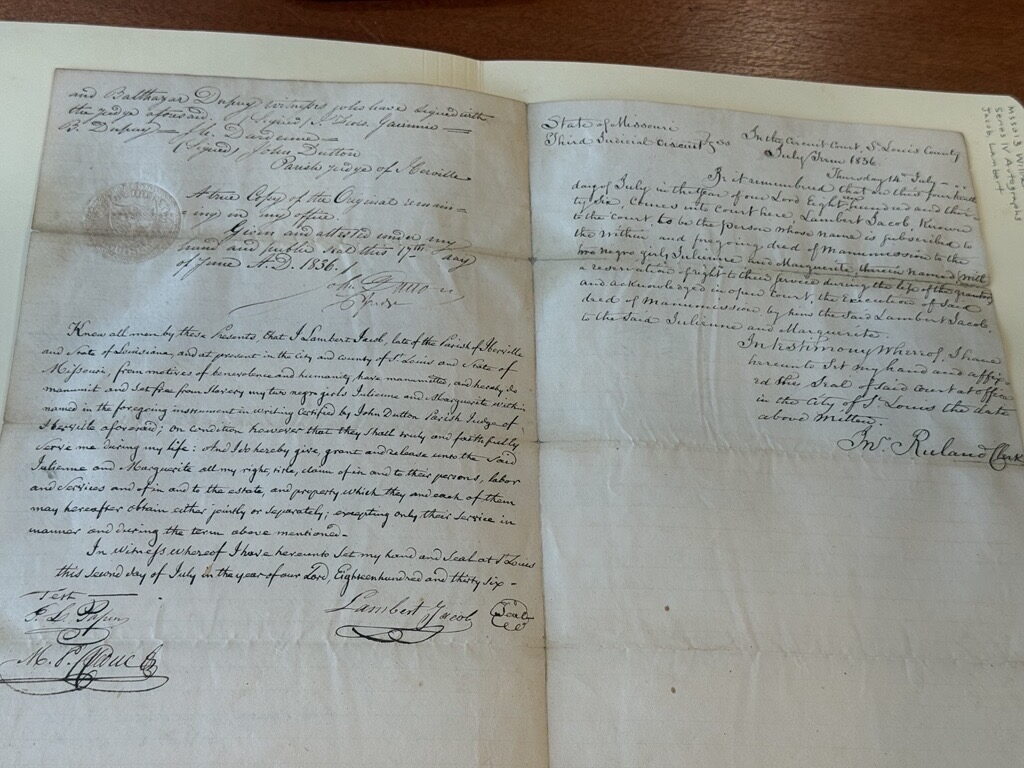 and Balthazar Dupuy witnesses who have signed with
the judge aforesaid (Signed)
B. Dupuy —
(Signed) John Dutton
Parish judge of Iberville
A true Copy of the Original remain-
ing in my office.
Given and attested under my
hand and public seal this 17th day
of June A.D. 1836.
Judge
Know all men by these Presents, that I Lambert Jacob, late of the Parish of Iberville
and State of Louisiana, and at present in the City and County of St Louis and State of
Missouri, from motives of benevolence and humanity, have manumitted, and hereby do
manumit and set free from Slavery my two negro girls Julienne and Marguerite within
named in the foregoing instrument in Writing Certified by John Dutton Parish Judge of
Iberville aforesaid; on condition however that they shall truly and faithfully
Serve me during my life: And I do hereby give, grant and release unto the Said
Julienne and Marguerite all my right, title, claim of in and to their persons, labor
and Services and of in and to the estate, and property which they and each of them
may hereafter obtain either jointly or separately; excepting only their Service in
manner and during the term above mentioned—
In Witness whereof I have hereunto Set my hand and Seal at St Louis
this second day of July in the year of our Lord Eighteen hundred and thirty six —
Test
Lambert Jacob
Seal
State of Missouri
Third Judicial Circuit
In the Circuit Court, St Louis County
July Term 1836.
Thursday 14th July —
Be it remembered that on this fourteenth
day of July in the Year of our Lord Eighteen hundred and thir
ty Six, Comes into Court here, Lambert Jacob, Known
to the Court to be the person whose name is subscribed to
the Within and foregoing deed of Manumission to the
two negro girls Julienne and Marguerite therein named, With
a reservation of right to their Service during the life of the grantor,
and acknowledged in open Court, the execution of Said
deed of manumission by him the Said Lambert Jacob,
to the Said Julienne and Marguerite.
In testimony Whereof, I have
hereunto Set my hand and affix-
ed the Seal of Said Court at office
in the City of St Louis the date
above Written.
Jno Ruland Clerk
Series IV Autographs
Jacob Lambert